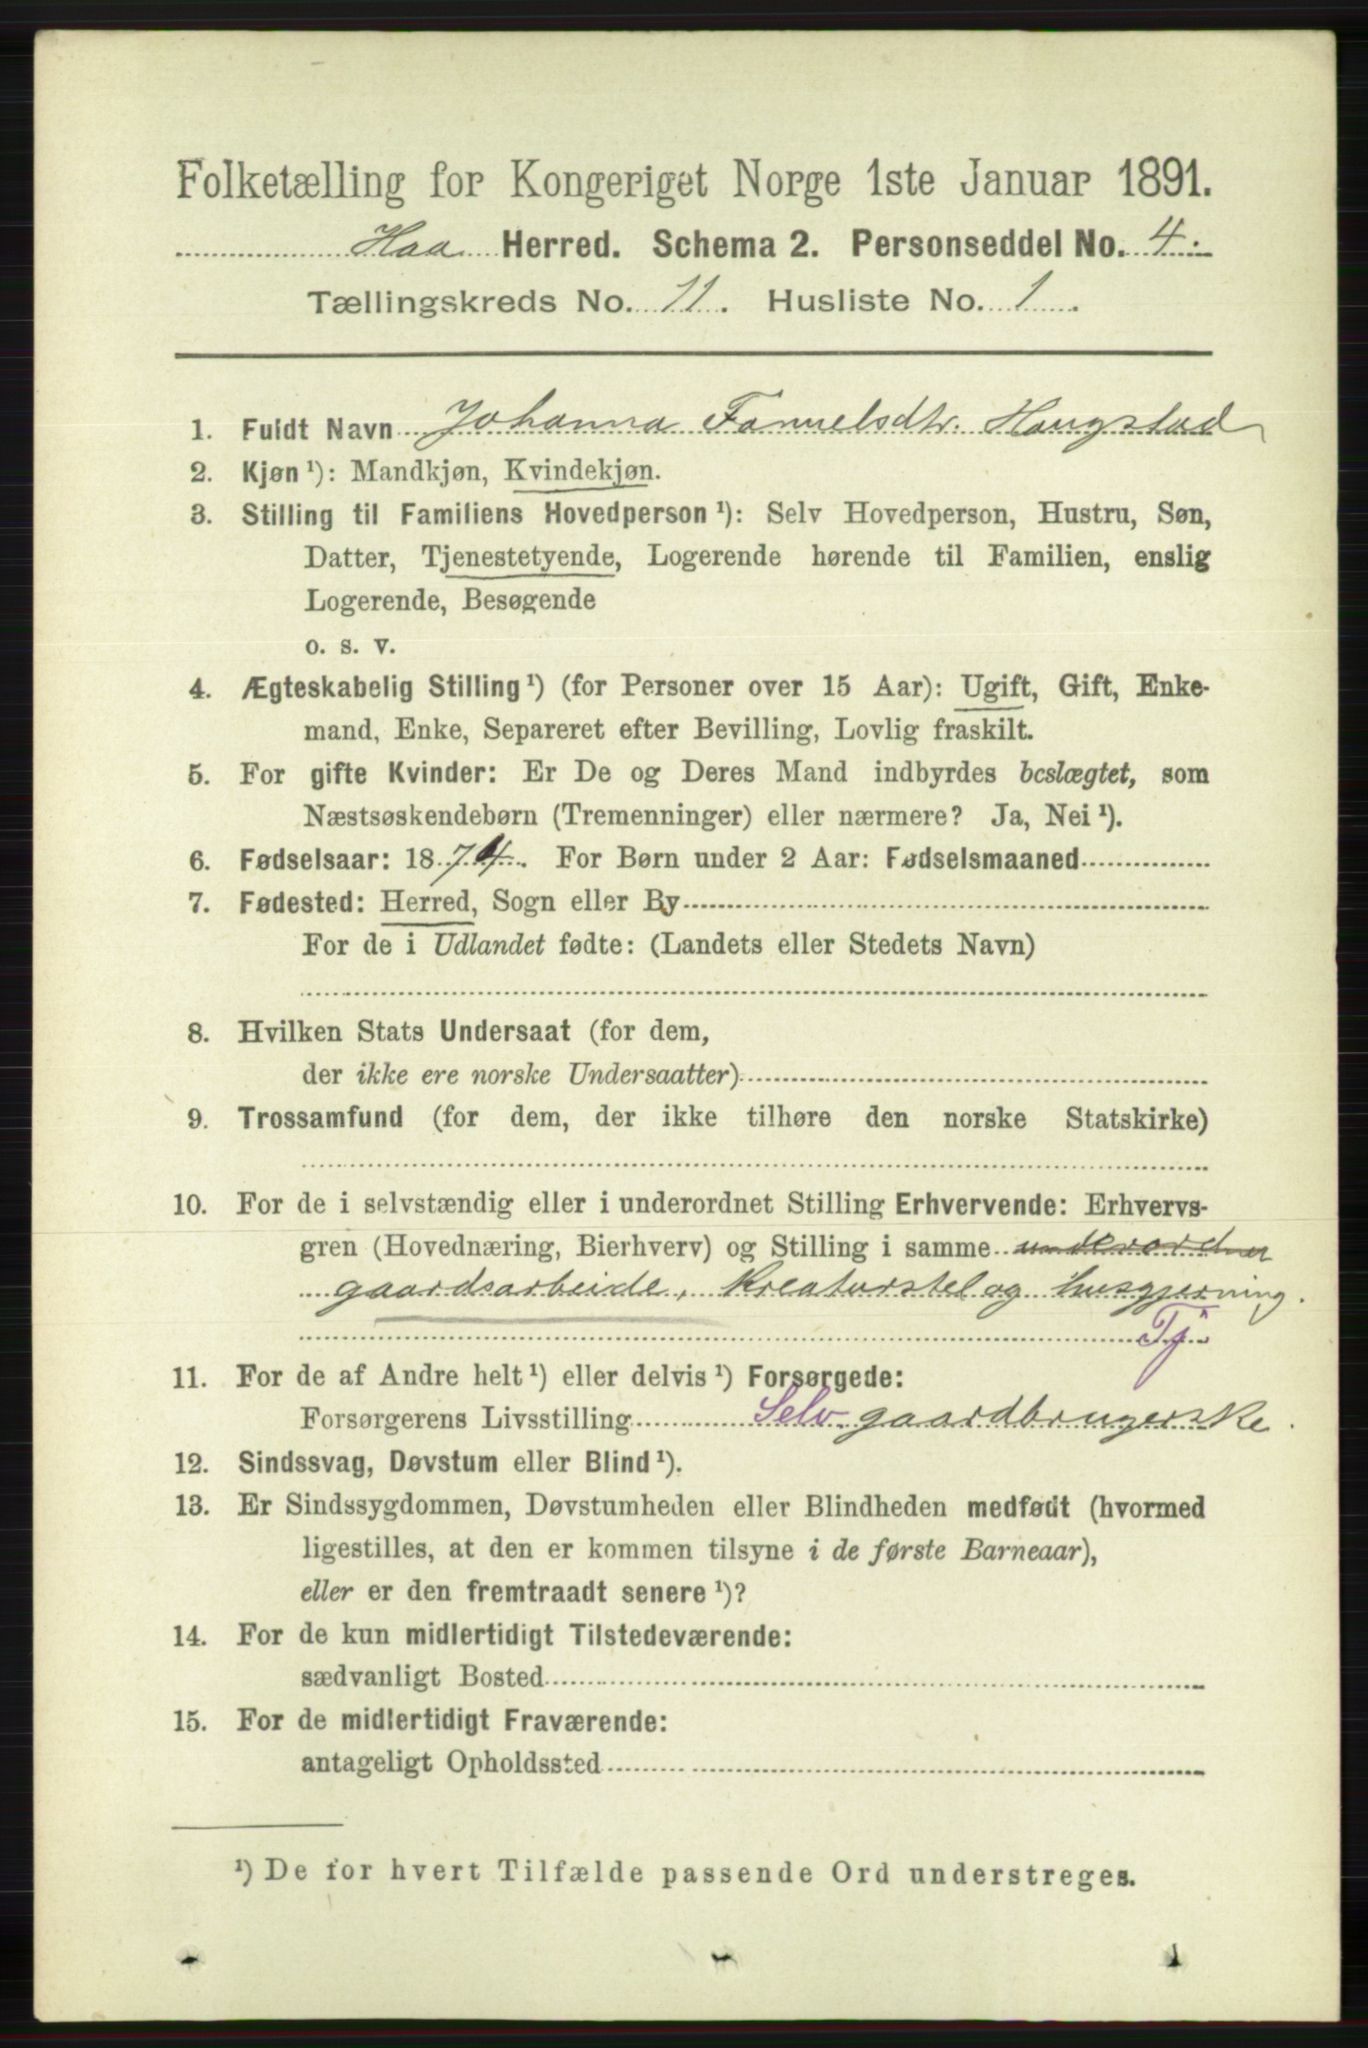 Folketælling for Kongeriget Norge 1ste Januar 1891.
Haa Herred. Schema 2. Personseddel No. 4.
Tællingskreds No. 11. Husliste No. 1.
1. Fuldt Navn Johanna Fanuelsdtr. Haugstad
2. Kjøn ¹): Mandkjøn, Kvindekjøn.
3. Stilling til Familiens Hovedperson ¹): Selv Hovedperson, Hustru, Søn,
Datter, Tjenestetyende, Logerende hørende til Familien, enslig
Logerende, Besøgende
o. s. v.
4. Ægteskabelig Stilling ¹) (for Personer over 15 Aar): Ugift, Gift, Enke-
mand, Enke, Separeret efter Bevilling, Lovlig fraskilt.
5. For gifte Kvinder: Er De og Deres Mand indbyrdes beslægtet, som
Næstsøskendebørn (Tremenninger) eller nærmere? Ja, Nei ¹).
6. Fødselsaar: 1874. For Børn under 2 Aar: Fødselsmaaned
7. Fødested: Herred, Sogn eller By
For de i Udlandet fødte: (Landets eller Stedets Navn)
8. Hvilken Stats Undersaat (for dem,
der ikke ere norske Undersaatter)
9. Trossamfund (for dem, der ikke tilhøre den norske Statskirke)
10. For de i selvstændig eller i underordnet Stilling Erhvervende: Erhvervs-
gren (Hovednæring, Bierhverv) og Stilling i samme underordnet
gaardsarbeide, Kreaturstel og husgjerning.
Tj.
11. For de af Andre helt ¹) eller delvis ¹) Forsørgede:
Forsørgerens Livsstilling Selv gaardbrugerske.
12. Sindssvag, Døvstum eller Blind ¹).
13. Er Sindssygdommen, Døvstumheden eller Blindheden medfødt (hvormed
ligestilles, at den er kommen tilsyne i de første Barneaar),
eller er den fremtraadt senere ¹)?
14. For de kun midlertidigt Tilstedeværende:
sædvanligt Bosted
15. For de midlertidigt Fraværende:
antageligt Opholdssted
¹) De for hvert Tilfælde passende Ord understreges.